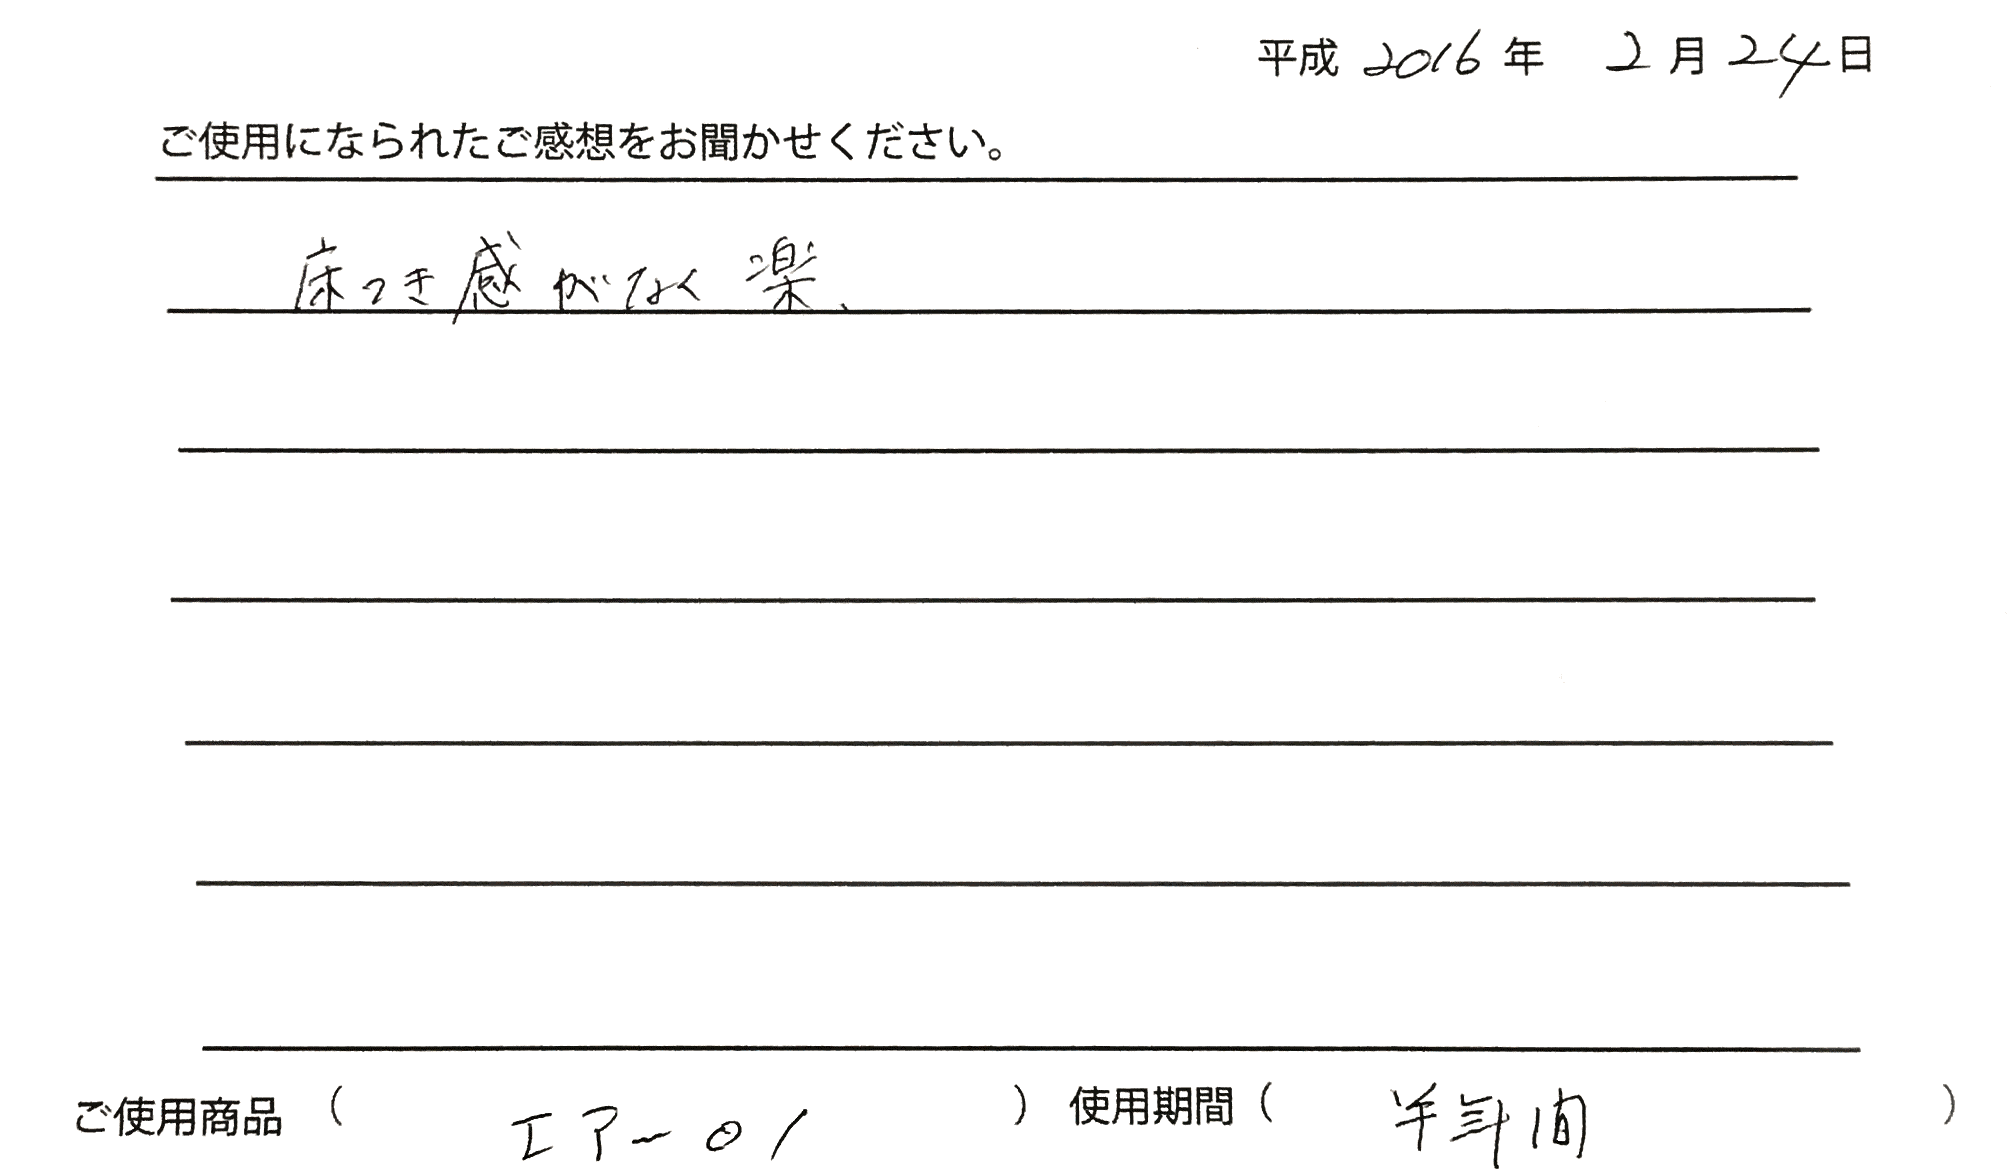 平成 2016 年 2 月 24 日
ご使用になられたご感想をお聞かせください。
床つき感がなく楽、
ご使用商品 ( エアー01 ) 使用期間 ( 半年間 )